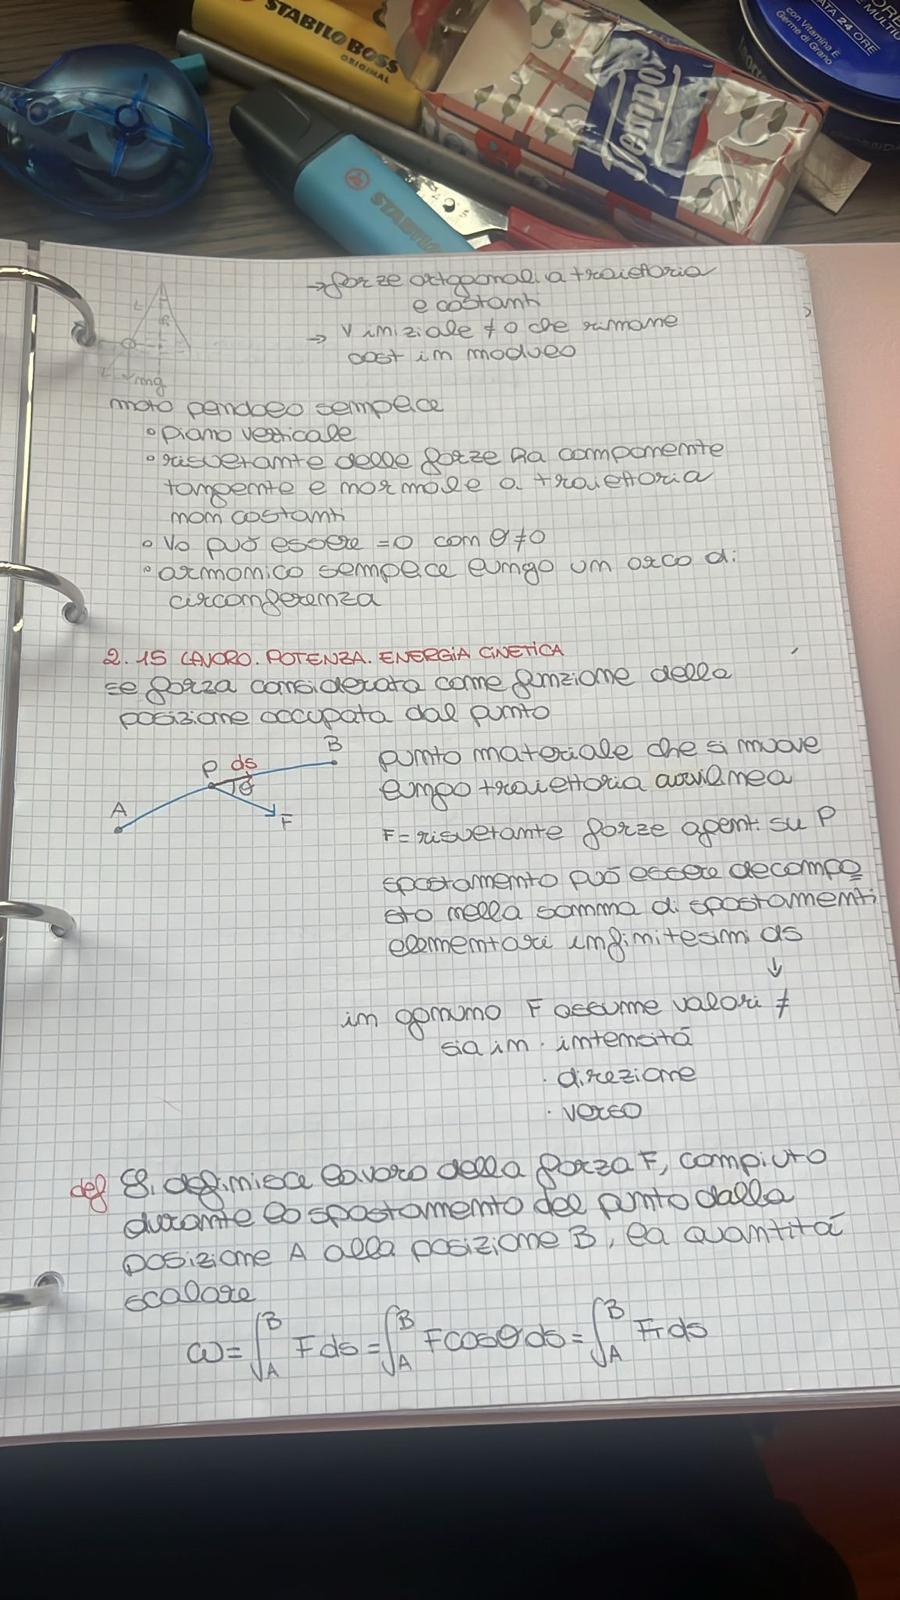 STABILO BOSS
ORIGINAL
Tempo
ATA 24 ORE
con Vitamina E
Germe di Grano
STABILO
→ forze ortogonali a traiettoria
e costanti
→ v iniziale ≠0 che rimane
cost in modulo
L
mg
moto pendolo semplice
• piano verticale
• risultante delle forze ha componente
tangente e normale a traiettoria
non costanti
• v₀ può essere =0 con θ≠0
• armonico semplice lungo un arco di
circonferenza
2.15 LAVORO. POTENZA. ENERGIA CINETICA
se forza considerata come funzione della
posizione occupata dal punto
A P ds B
θ F
punto materiale che si muove
lungo traiettoria curvilinea
F= risultante forze agenti su P
spostamento può essere decompo
sto nella somma di spostamenti
elementari infinitesimi ds
↓
in F assume valori ≠
sia in · intensità
· direzione
· verso
def Si definisce lavoro della forza F, compiuto
durante lo spostamento del punto dalla
posizione A alla posizione B, la quantità
scalare
ω = ∫_A^B F ds = ∫_A^B F cosθ ds = ∫_A^B F_T ds